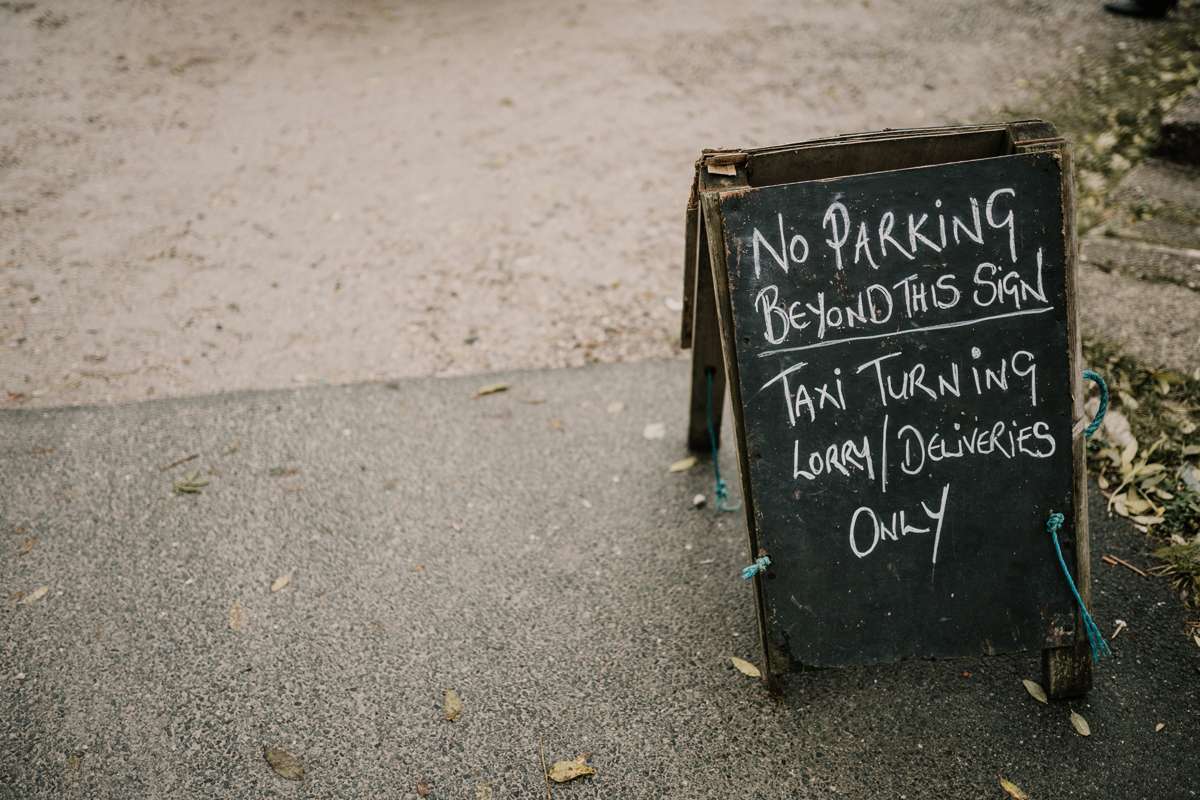 No PARKiNG
BEYOND THIS SiGN
TAXi TURNiNG
LORRY/DELiVERiES
ONLY